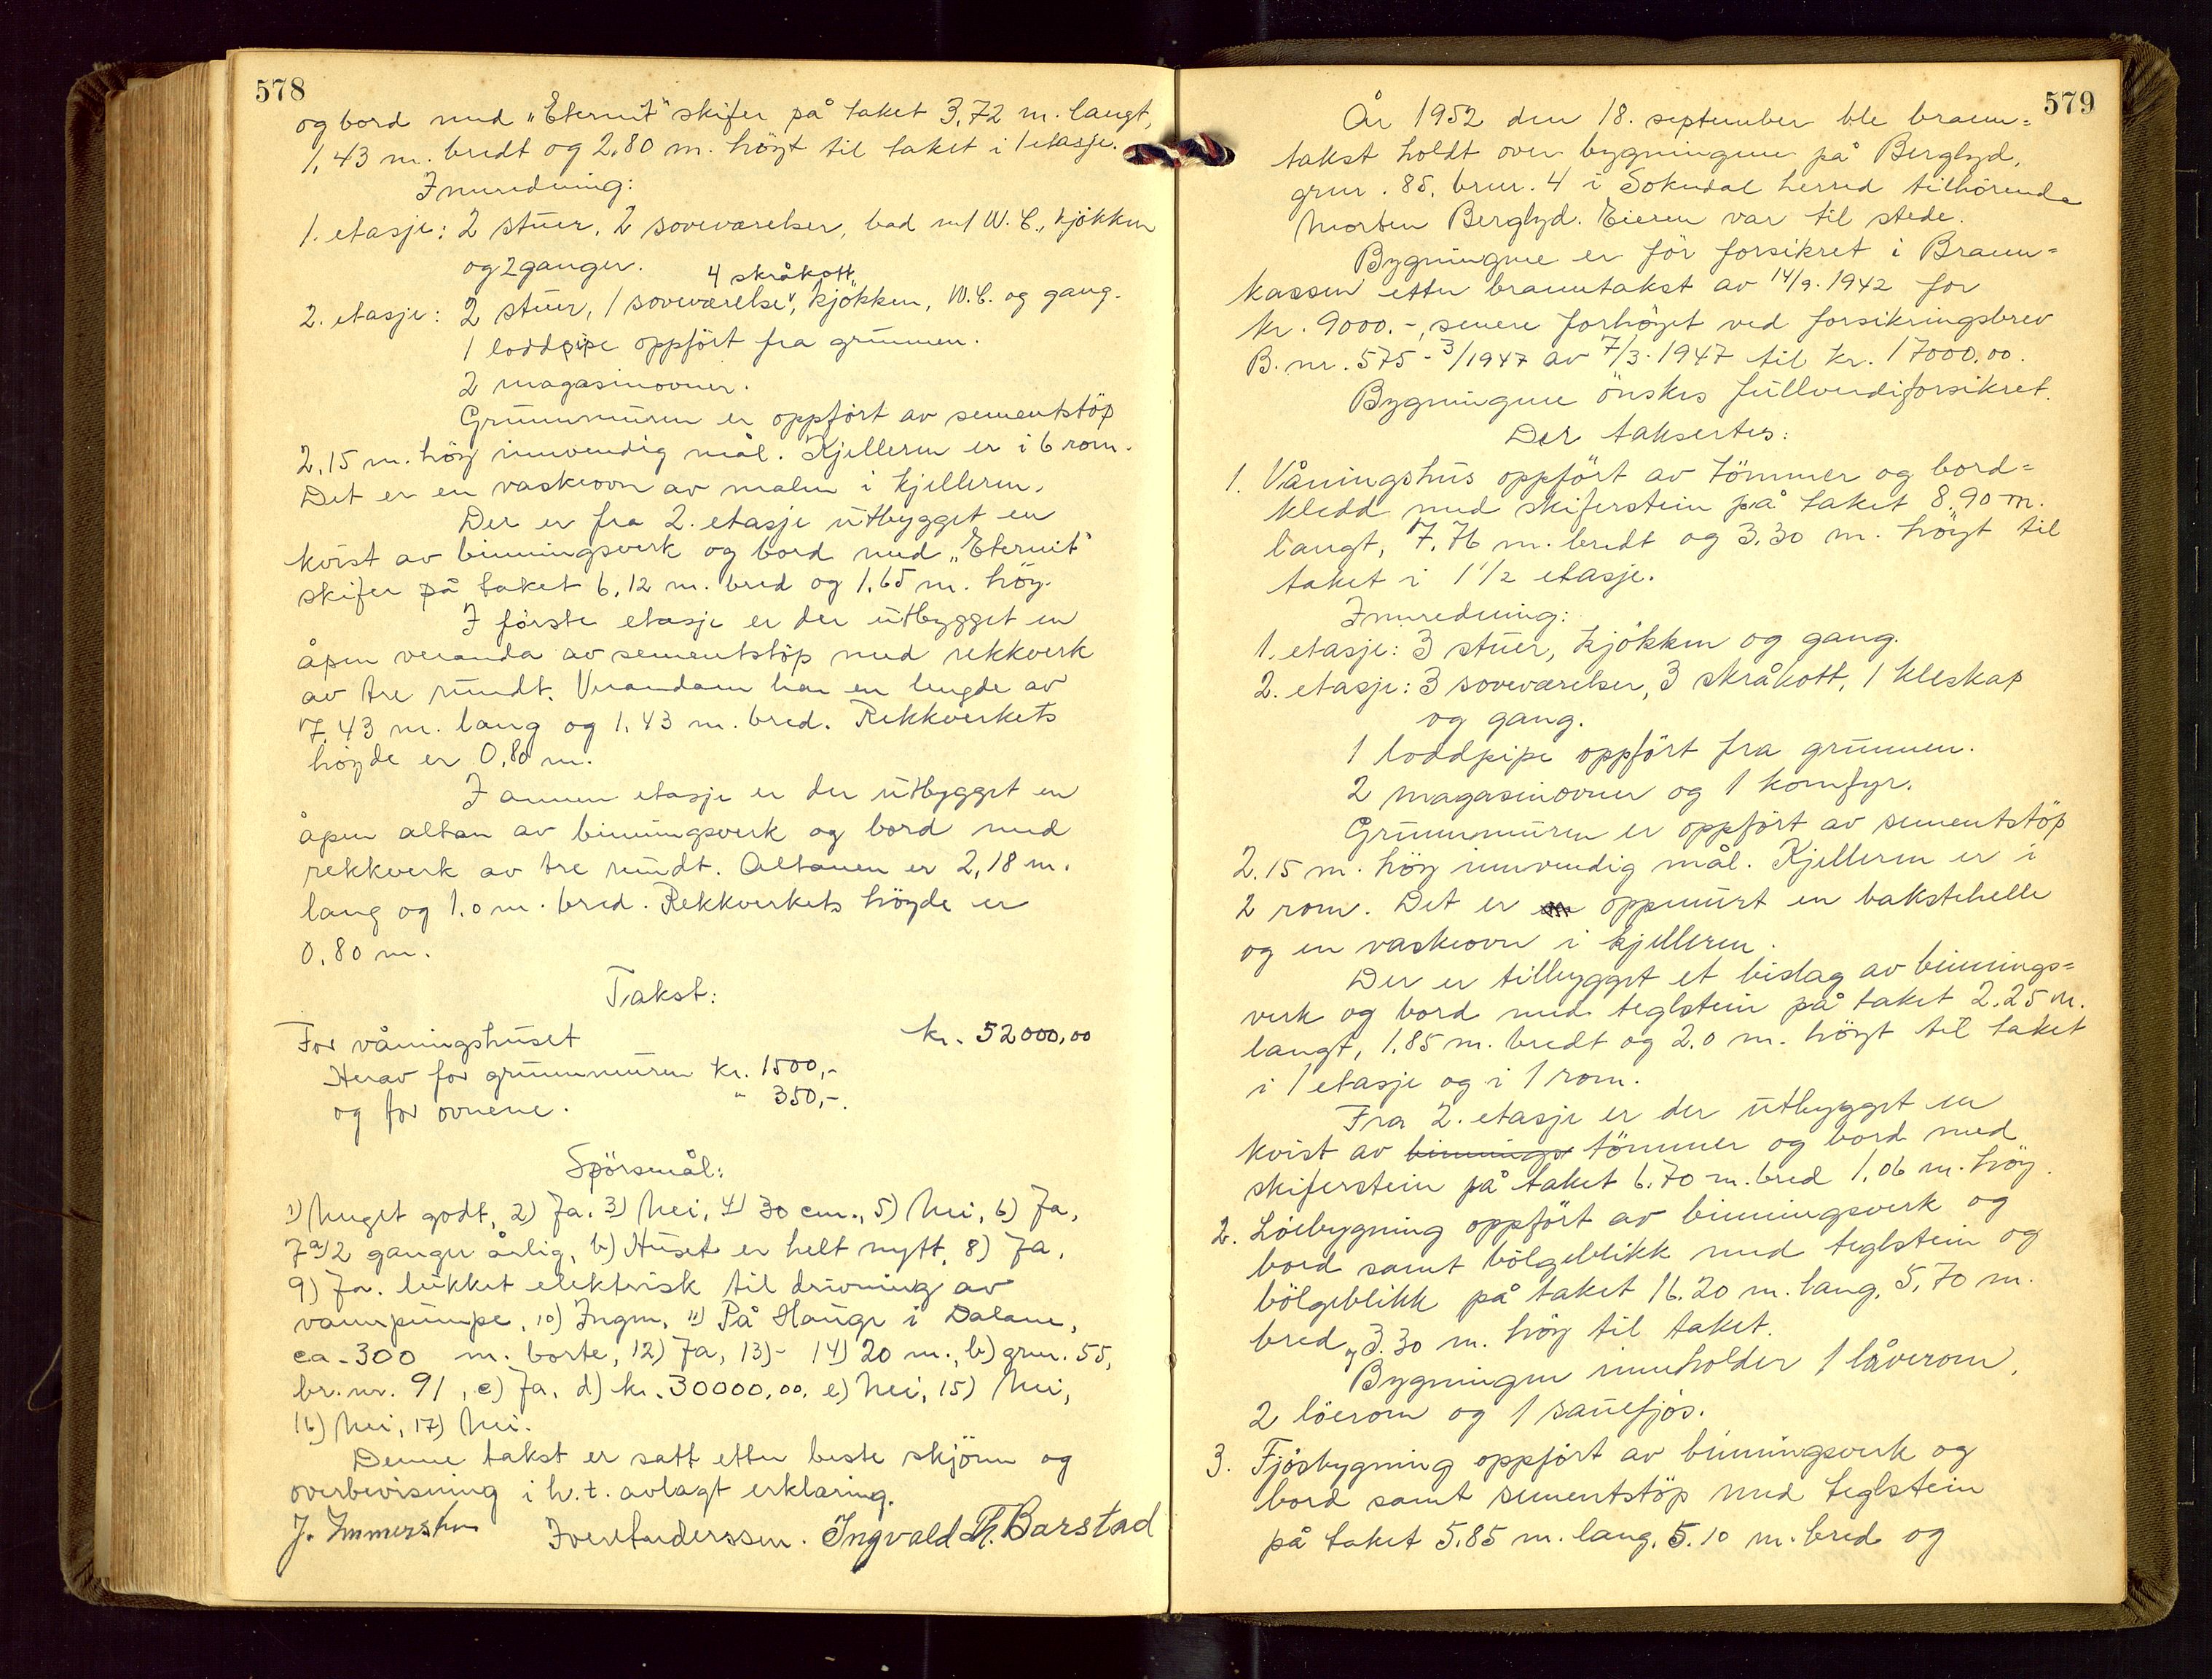 578
og bord med „Eternit" skifer på taket 3,72 m. langt,
1,43 m. bredt og 2,80 m. höyt til taket i 1 etasje.
Innredning:
1. etasje: 2 stuer, 2 soveværelser, bad m/ W.C., kjökken
og 2 ganger.
4 skråkott,
2. etasje: 2 stuer, 1 soveværelse, kjökken, W.C. og gang.
1 loddpipe oppfört fra grunnen.
2 magasinovner.
Grunnmuren er oppfört av sementstöp
2,15 m. höy innvendig mål. Kjelleren er i 6 rom.
Det er en vaskeovn av malm i kjelleren.
Der er fra 2. etasje utbygget en
kvist av binningsverk og bord med „Eternit"
skifer på taket 6,12 m. bred og 1,65 m. höy.
I förste etasje er der utbygget en
åpen veranda av sementstöp med rekkverk
av tre rundt. Verandaen har en lengde av
7,43 m. lang og 1,43 m. bred. Rekkverkets
höyde er 0,80 m.
I annen etasje er der utbygget en
åpen altan av binningsverk og bord med
rekkverk av tre rundt. Altanen er 2,18 m.
lang og 1.0 m. bred. Rekkverkets höyde er
0,80 m.
Takst:
For våningshuset kr. 52000,00
Herav for grunnmuren kr. 1500,-
og for ovnene. " 350,-.
Spörsmål:
1) Meget godt, 2) Ja. 3) Nei, 4) 30 cm., 5) Nei, 6) Ja,
7 a) 2 ganger årlig, b) Huset er helt nytt, 8) Ja,
9) Ja. lukket elektrisk til drivning av
vannpumpe, 10) Ingen, 11) På Hauge i Dalane,
ca. 300 m. borte, 12) Ja, 13) - 14) 20 m., b) gnr. 55,
br.nr. 91, c) Ja, d) kr. 30000,00, e) Nei, 15) Nei,
16) Nei, 17) Nei.
Denne takst er satt etter beste skjönn og
overbevisning i h.t. avlagt erklæring.
J. Immerstein Iver Anderssen. Ingvald Th. Barstad
579
År 1952 den 18. september ble brann=
takst holdt over bygningene på Berglyd,
gnr. 85, brnr. 4 i Sokndal herred tilhörende
Morten Berglyd. Eieren var til stede.
Bygningene er för forsikret i Brann=
kassen etter branntakst av 14/9. 1942 for
kr. 9000.-, senere forhöyet ved forsikringsbrev
B. nr. 575 - 3/1947 av 7/3. 1947 til kr. 17000,00.
Bygningene önskes fullverdiforsikret.
Der taksertes:
1. Våningshus oppfört av tömmer og bord=
kledd med skiferstein på taket 8,90 m.
langt, 7,76 m. bredt og 3,30 m. höyt til
taket i 1 1/2 etasje.
Innredning:
1. etasje: 3 stuer, kjökken og gang.
2. etasje: 3 soveværelser, 3 skråkott, 1 kleskap
og gang.
1 loddpipe oppfört fra grunnen.
2 magasinovner og 1 komfyr.
Grunnmuren er oppfört av sementstöp
2.15 m. höy innvendig mål. Kjelleren er i
2 rom. Det er oppmurt en bakstehelle
og en vaskeovn i kjelleren.
Der er tilbygget et bislag av binnings=
verk og bord med teglstein på taket 2.25 m.
langt, 1.85 m. bredt og 2.0 m. höyt til taket
i 1 etasje og i 1 rom.
Fra 2. etasje er der utbygget en
kvist av binnings tömmer og bord med
skiferstein på taket 6.70 m. bred 1,06 m. höy.
2. Löebygning oppfört av binningsverk og
bord samt bölgeblikk med teglstein og
bölgeblikk på taket 16.20 m. lang, 5,70 m.
bred og 3.30 m. höy til taket.
Bygningen inneholder 1 låverom,
2 löerom og 1 sauefjös.
3. Fjösbygning oppfört av binningsverk og
bord samt sementstöp med teglstein
på taket 5,85 m. lang, 5.10 m. bred og